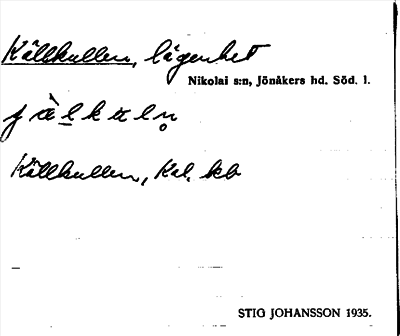 Källkullen, lägenhet
Nikolai s:n, Jönåkers hd. Söd. l.
Källkullen, Kal. kb
STIG JOHANSSON 1935.